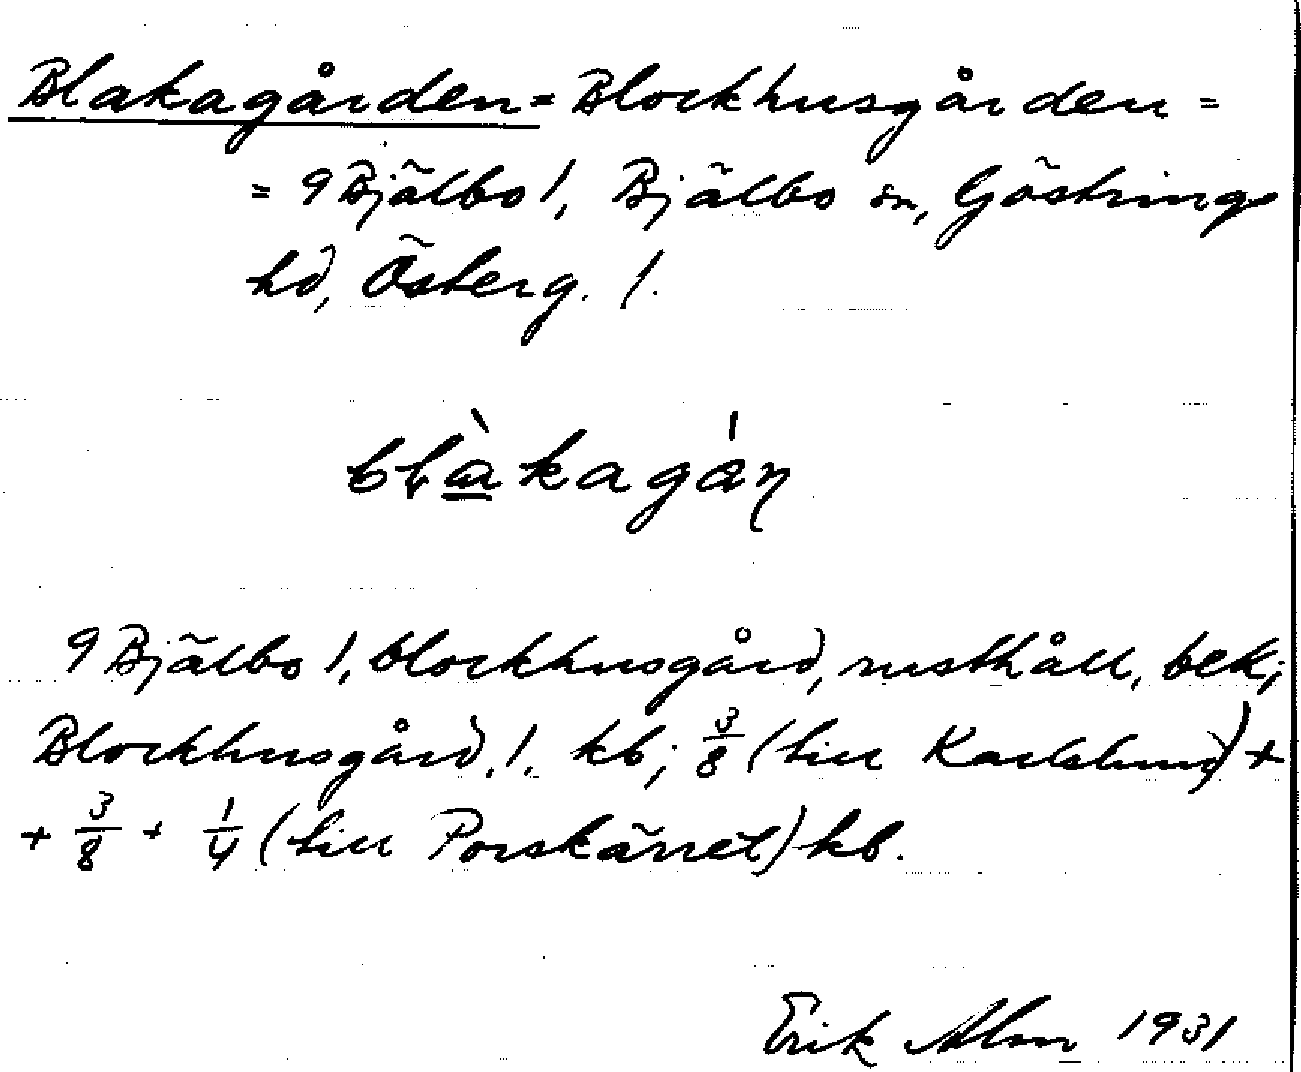 Blakagården = Blockhusgården =
= 9 Bjälbo 1, Bjälbo sn, Göstrings
hd, Österg. l.
blàkagán
9 Bjälbo 1, blockhusgård, rusthåll, bek;
Blockhusgård, 1, kb; 3/8 (till Karlslund) +
+ 3/8 + 1/4 (till Porskärret) kb.
Erik Alm 1931